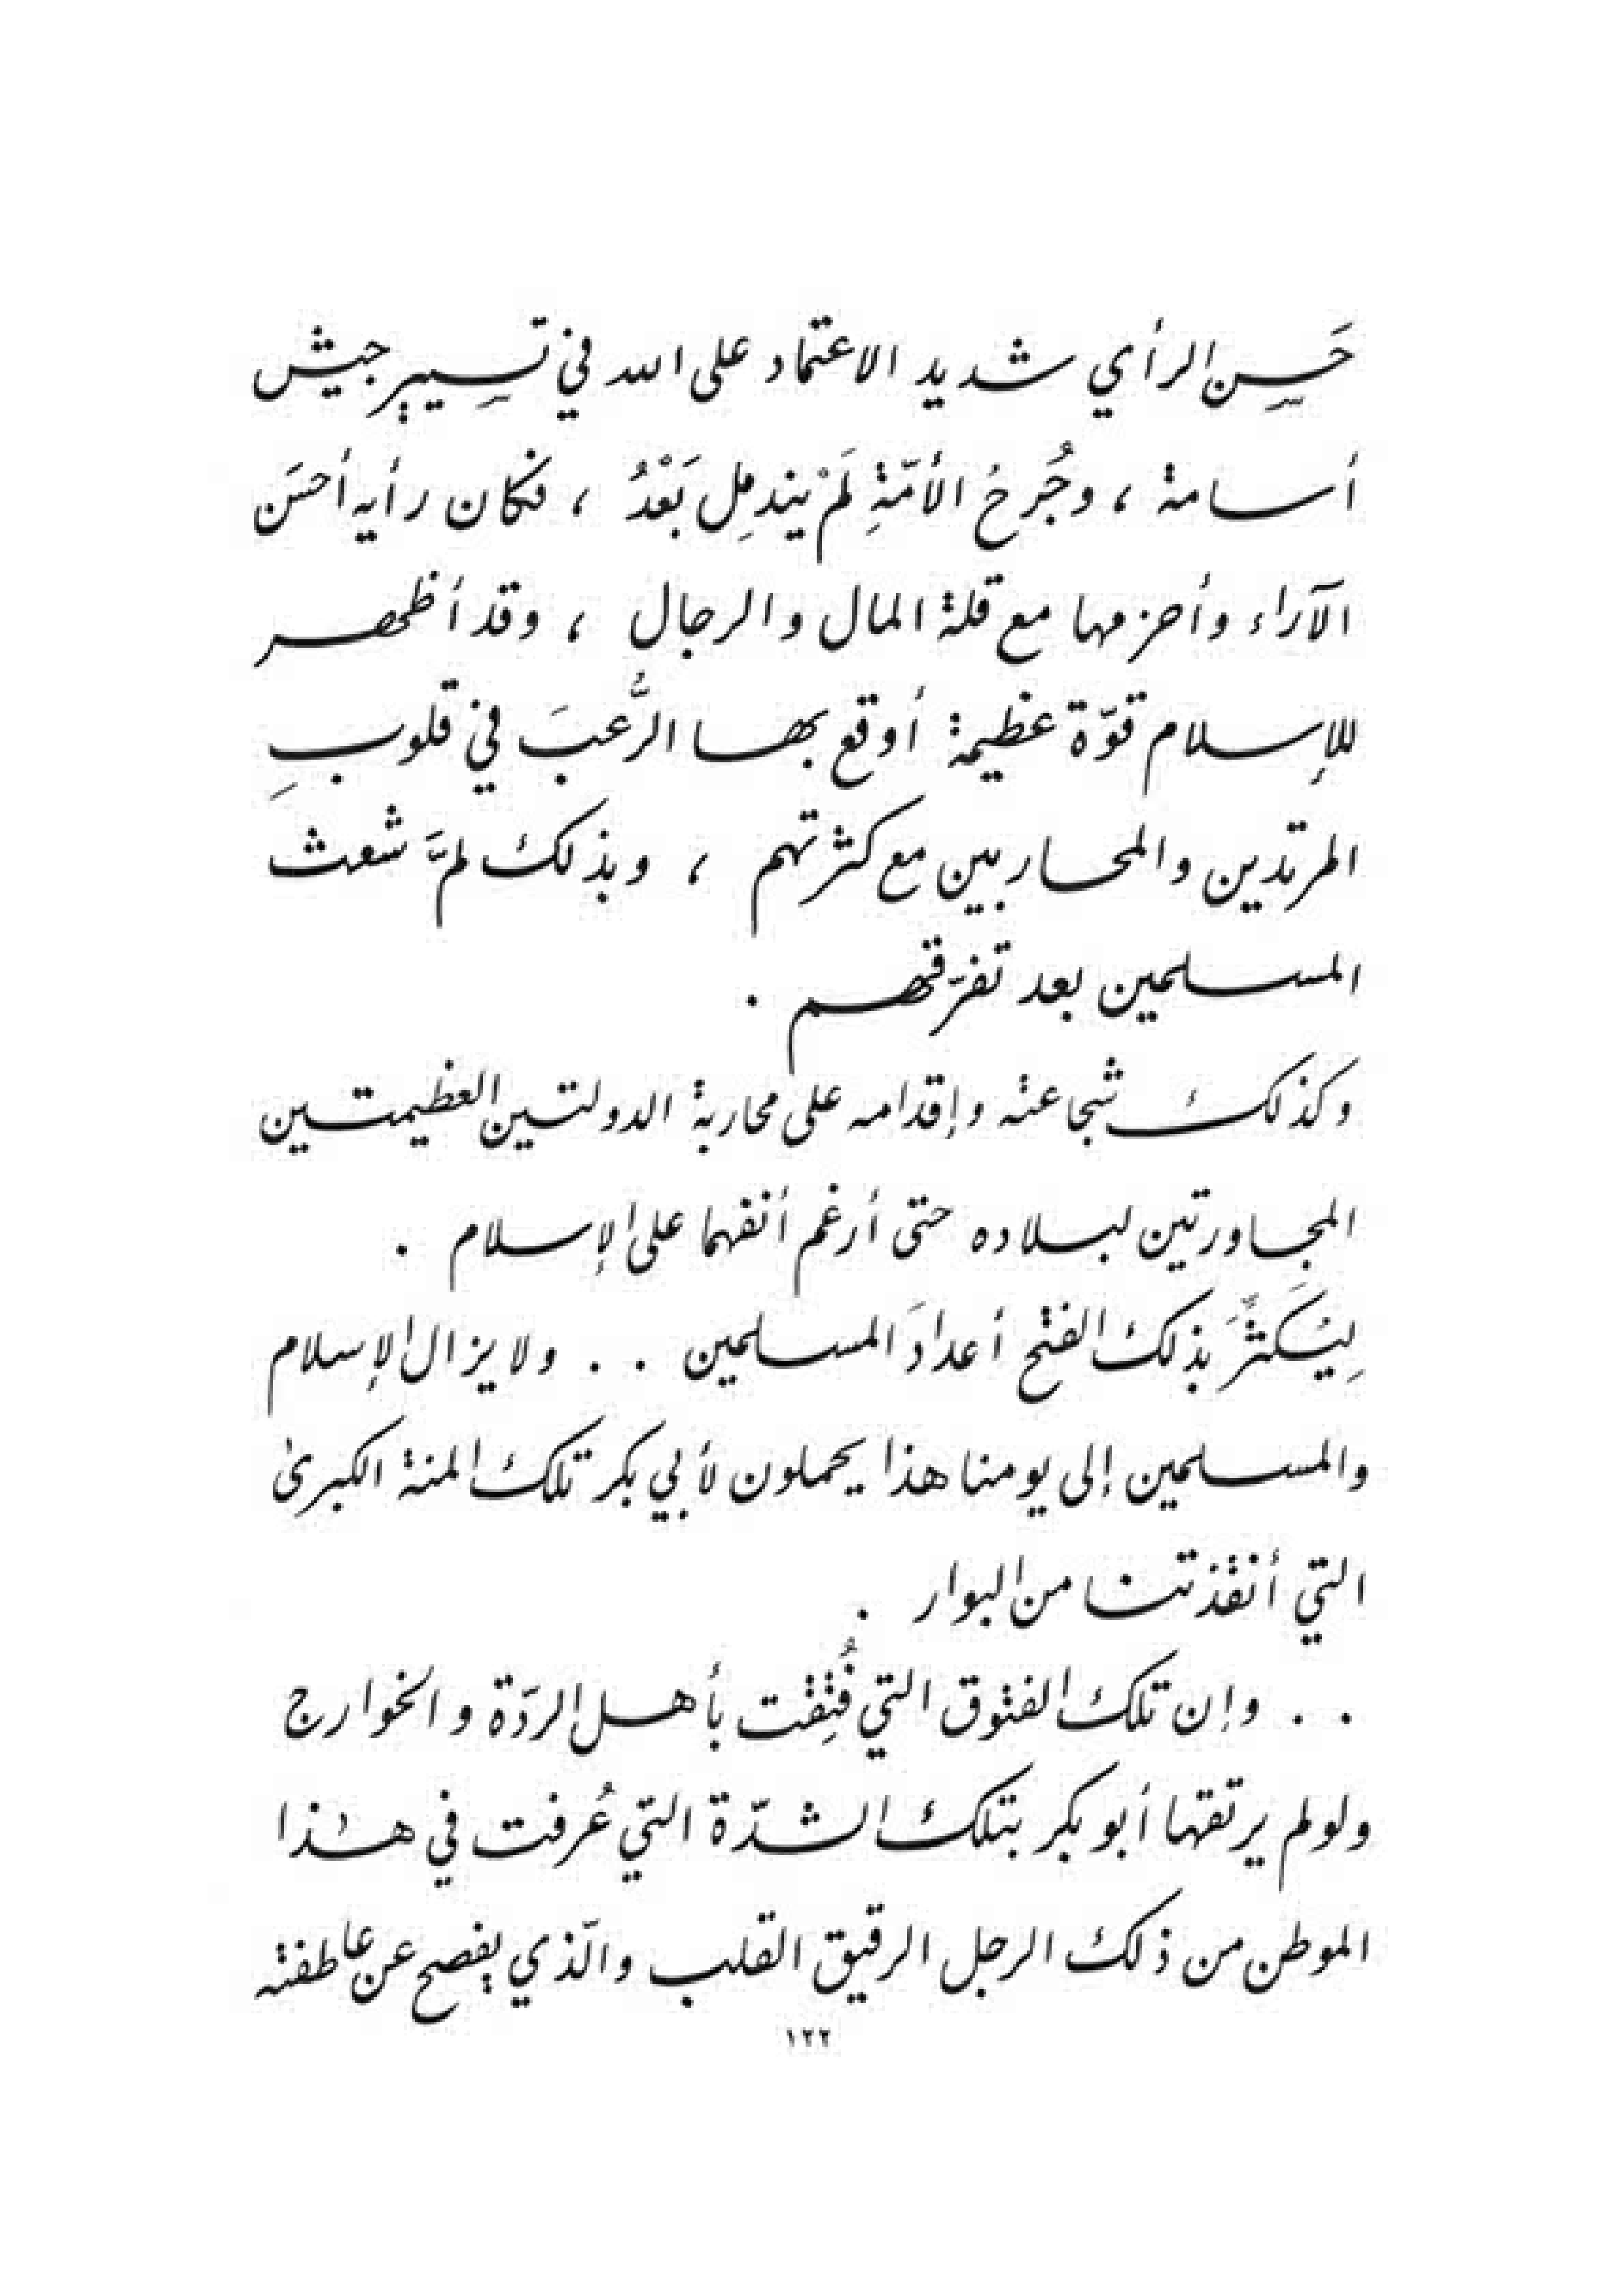 حَسِن الرأي شديد الاعتماد على الله في تسيير جيش
أسامة ، وجُرحُ الأمّةِ لَمْ يندمِل بَعْدُ ، فكان رأيه أحسَن
الآراء وأحزمها مع قلة المال والرجال ، وقد أظهر
للإسلام قوّة عظيمة : أوقع بها الرُّعبَ في قلوبِ
المرتدين والمحاربين مع كثرتهم ، وبذلك لمَّ شعث
المسلمين بعد تفرّقهم .
وكذلك شجاعته وإقدامه على محاربة الدولتين العظيمتين
المجاورتين لبلاده حتى أرغم أنفهما على الإسلام .
لِيُكَثِّرَ بذلك الفتح أعدادَ المسلمين . . ولا يزال الإسلام
والمسلمين إلى يومنا هذا يحملون لأبي بكر تلك المنة الكبرىٰ
التي أنقذتنا من البوار .
. . وإن تلك الفتوق التي فُتِقت بأهل الردّة والخوارج
ولو لم يرتقها أبو بكر بتلك الشدّة التي عُرفت في هٰذا
الموطن من ذلك الرجل الرقيق القلب والّذي يفصح عن عاطفته
١٢٢